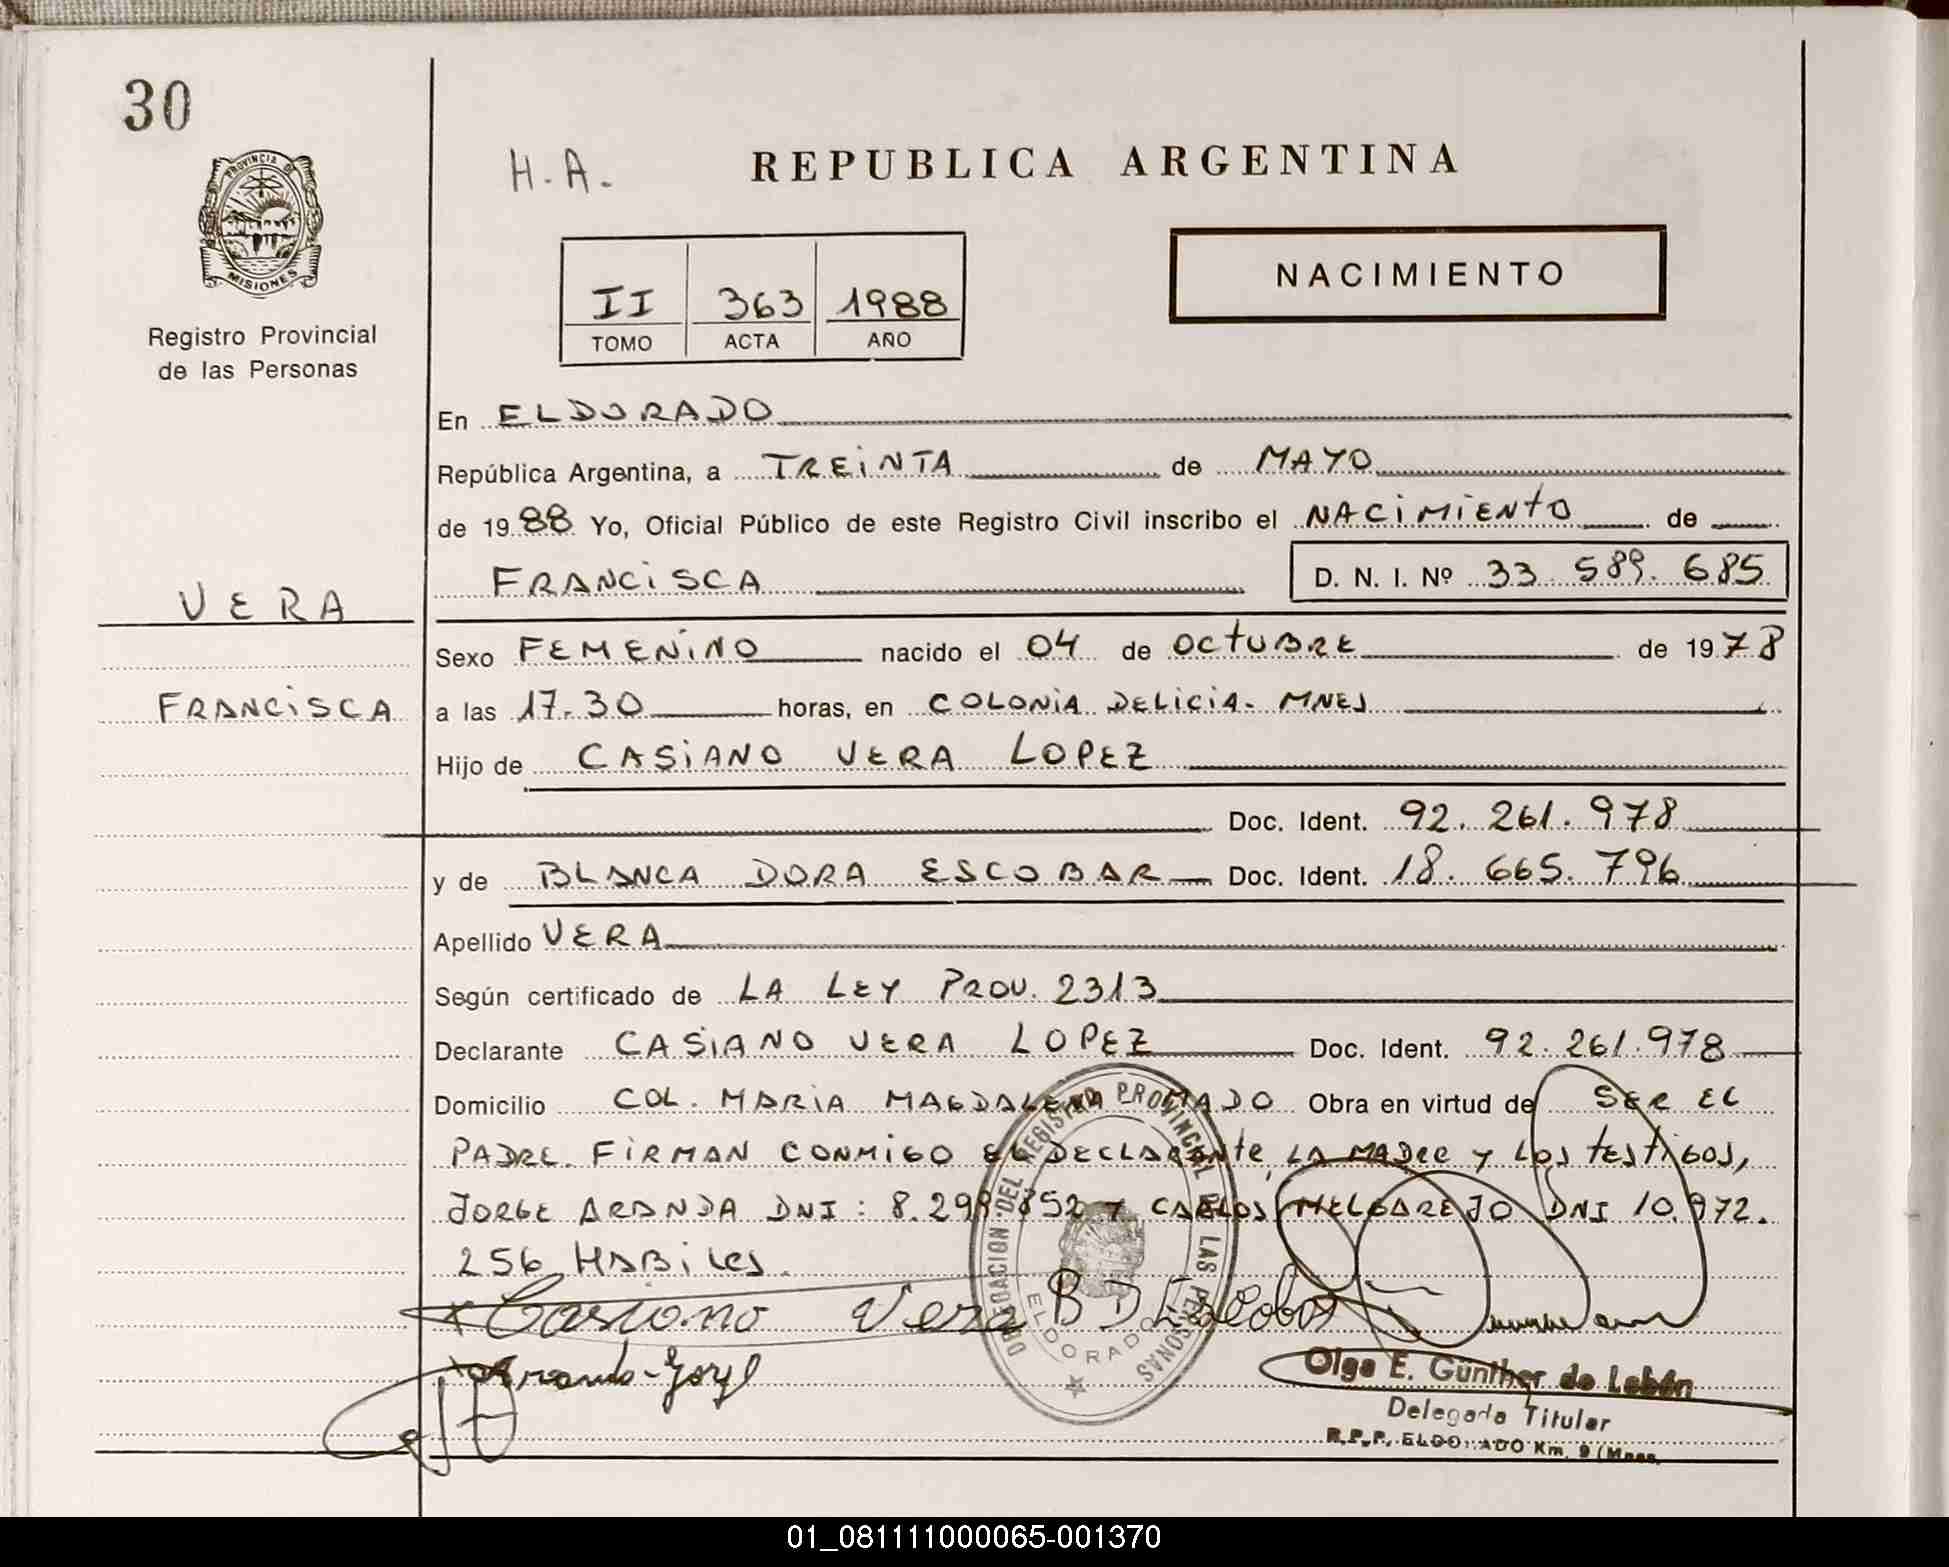 30
H.A.
REPUBLICA ARGENTINA
PROVINCIA DE
MISIONES
Registro Provincial
de las Personas
NACIMIENTO
II 363 1988
TOMO ACTA AÑO
En ELDORADO
República Argentina, a TREINTA de MAYO
de 1988 Yo, Oficial Público de este Registro Civil inscribo el NACIMIENTO de
FRANCISCA D. N. I. Nº 33 589. 685
VERA
FRANCISCA
Sexo FEMENINO nacido el 04 de OCTUBRE de 1978
a las 17.30 horas, en COLONIA DELICIA. MNES
Hijo de CASIANO VERA LOPEZ
Doc. Ident. 92. 261. 978
y de BLANCA DORA ESCOBAR Doc. Ident. 18. 665. 796
Apellido VERA
Según certificado de LA LEY PROV. 2313
Declarante CASIANO VERA LOPEZ Doc. Ident. 92. 261.978
Domicilio COL. MARIA MAGDALENA MADO Obra en virtud de SER EL
PADRE. FIRMAN CONMIGO EL DECLARANTE, LA MADRE Y LOS TESTIGOS,
JORGE ARANDA DNI: 8.298.852 Y CARLOS MELGAREJO DNI 10.972.
256 HABILES.
x Casiano Vera B D Escobar
DELEGACION DEL REGISTRO PROVINCIAL DE LAS PERSONAS
ELDORADO
Olga E. Günther de Lebán
Delegada Titular
R.P.P. ELDORADO Km. 9 (Mnes.
01_081111000065-001370